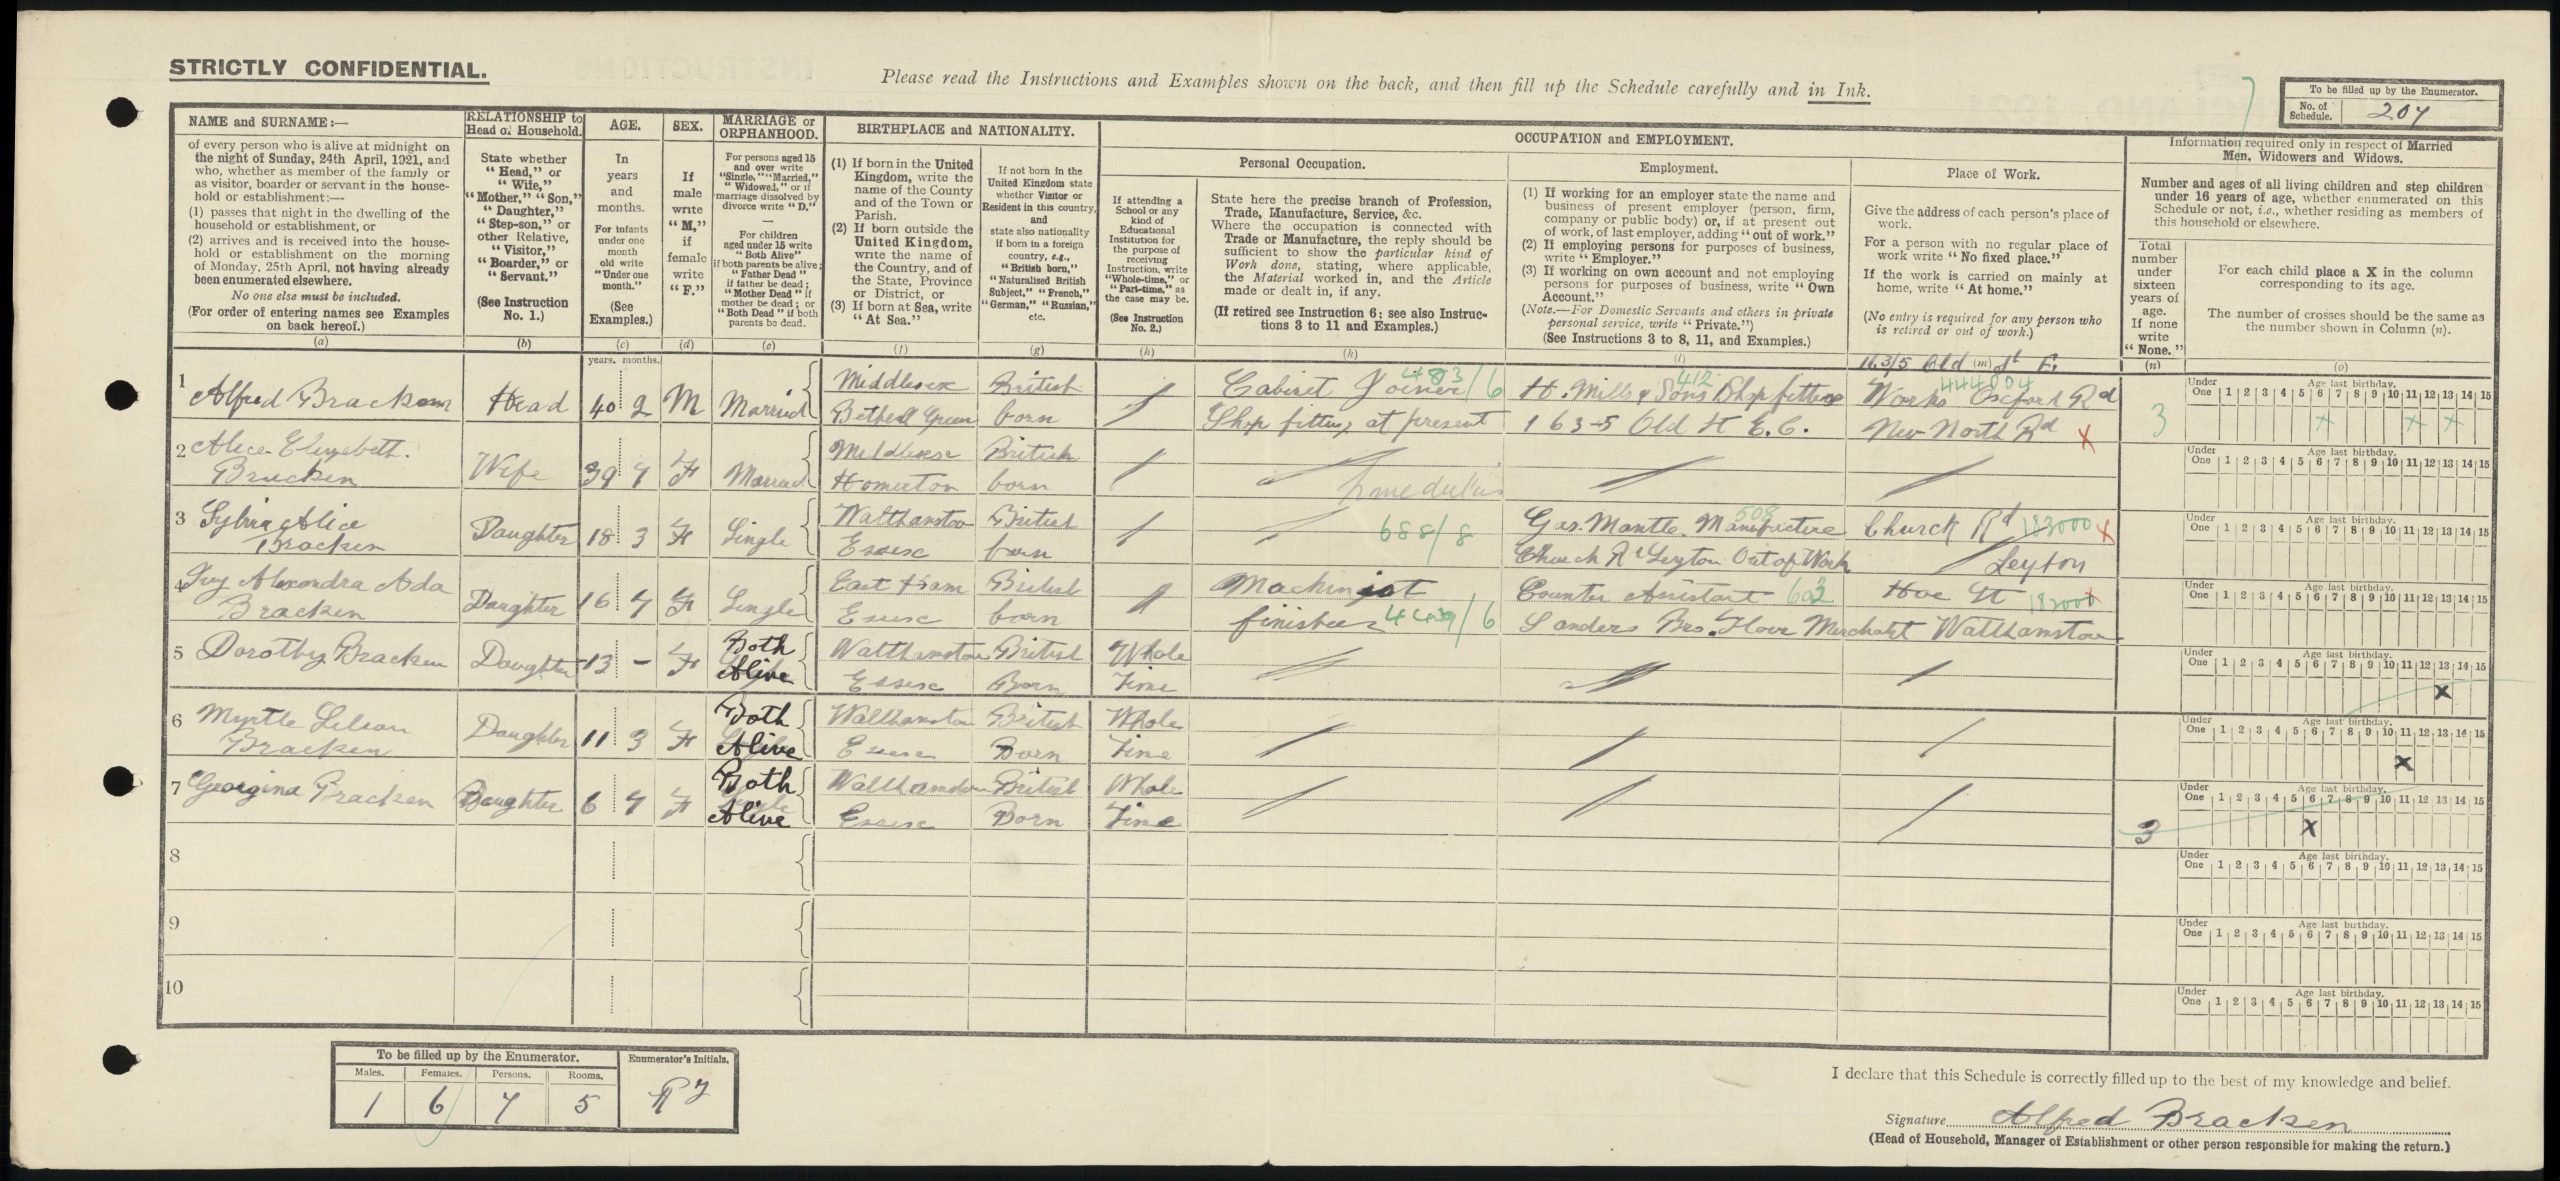 STRICTLY CONFIDENTIAL.
Please read the Instructions and Examples shown on the back, and then fill up the Schedule carefully and in Ink.
To be filled up by the Enumerator.
No. of Schedule. 207
NAME and SURNAME:—
of every person who is alive at midnight on
the night of Sunday, 24th April, 1921, and
who, whether as member of the family or
as visitor, boarder or servant in the house-
hold or establishment:—
(1) passes that night in the dwelling of the
household or establishment, or
(2) arrives and is received into the house-
hold or establishment on the morning
of Monday, 25th April, not having already
been enumerated elsewhere.
No one else must be included.
(For order of entering names see Examples
on back hereof.)
(a)
RELATIONSHIP to
Head of Household.
State whether
"Head," or
"Wife,"
"Mother," "Son,"
"Daughter,"
"Step-son," or
other Relative,
"Visitor,"
"Boarder," or
"Servant."
(See Instruction
No. 1.)
(b)
AGE.
In
years
and
months.
For infants
under one
month
old write
"Under one
month."
(See
Examples.)
(c)
years. months.
SEX.
If
male
write
"M,"
if
female
write
"F."
(d)
MARRIAGE or
ORPHANHOOD.
For persons aged 15
and over write
"Single," "Married,"
"Widowed," or if
marriage dissolved by
divorce write "D."
—
For children
aged under 15 write
"Both Alive"
if both parents be alive;
"Father Dead"
if father be dead;
"Mother Dead" if
mother be dead; or
"Both Dead" if both
parents be dead.
(e)
BIRTHPLACE and NATIONALITY.
(1) If born in the United
Kingdom, write the
name of the County
and of the Town or
Parish.
(2) If born outside the
United Kingdom,
write the name of
the Country, and of
the State, Province
or District, or
(3) If born at Sea, write
"At Sea."
(f)
If not born in the
United Kingdom state
whether Visitor or
Resident in this country,
and
state also nationality
if born in a foreign
country, e.g.,
"British born,"
"Naturalised British
Subject," "French,"
"German," "Russian,"
etc.
(g)
OCCUPATION and EMPLOYMENT.
If attending a
School or any
kind of
Educational
Institution for
the purpose of
receiving
Instruction, write
"Whole-time," or
"Part-time," as
the case may be.
(See Instruction
No. 2.)
(h)
Personal Occupation.
State here the precise branch of Profession,
Trade, Manufacture, Service, &c.
Where the occupation is connected with
Trade or Manufacture, the reply should be
sufficient to show the particular kind of
Work done, stating, where applicable,
the Material worked in, and the Article
made or dealt in, if any.
(If retired see Instruction 6; see also Instruc-
tions 3 to 11 and Examples.)
(k)
Employment.
(1) If working for an employer state the name and
business of present employer (person, firm,
company or public body) or, if at present out
of work, of last employer, adding "out of work."
(2) If employing persons for purposes of business,
write "Employer."
(3) If working on own account and not employing
persons for purposes of business, write "Own
Account."
(Note.—For Domestic Servants and others in private
personal service, write "Private.")
(See Instructions 3 to 8, 11, and Examples.)
(l)
Place of Work.
Give the address of each person's place of
work.
For a person with no regular place of
work write "No fixed place."
If the work is carried on mainly at
home, write "At home."
(No entry is required for any person who
is retired or out of work.)
(m)
Information required only in respect of Married
Men, Widowers and Widows.
Number and ages of all living children and step children
under 16 years of age, whether enumerated on this
Schedule or not, i.e., whether residing as members of
this household or elsewhere.
Total
number
under
sixteen
years of
age.
If none
write
"None."
(n)
For each child place a X in the column
corresponding to its age.
The number of crosses should be the same as
the number shown in Column (n).
(o)
163/5 Old St E.
1 Alfred Bracken Head 40 2 M Married Middlesex British Cabinet Joiner 483/6 H. Mills & Sons 412 Shopfitters Works 444004 Oxford Rd
Bethnal Green born Shop fitting at present 163-5 Old St E.C. New North Rd X 3
2 Alice Elizabeth Bracken Wife 39 7 F Married Middlesex British
Homerton born home duties
3 Sylvia Alice Bracken Daughter 18 3 F Single Walthamstow British 688/8 Gas Mantle Manufacture 508 Church Rd 183000 X
Essex born Church Rd Leyton Out of Work Leyton
4 Ivy Alexandra Ada Bracken Daughter 16 7 F Single East Ham British Machinist Counter Assistant 602 Hoe St
Essex born finisher 449/6 Sanders Bro. Merchant Walthamstow
5 Dorothy Bracken Daughter 13 - F Both Alive Walthamstow British Whole
Essex Born Time X
6 Myrtle Lilian Bracken Daughter 11 3 F Both Alive Walthamstow British Whole
Essex Born Time X
7 Georgina Bracken Daughter 6 7 F Both Alive Walthamstow British Whole
Essex Born Time 3 X
8
9
10
Under One Age last birthday. 1 2 3 4 5 6 7 8 9 10 11 12 13 14 15
To be filled up by the Enumerator.
Males. Females. Persons. Rooms.
1 6 7 5
Enumerator's Initials.
I declare that this Schedule is correctly filled up to the best of my knowledge and belief.
Signature Alfred Bracken
(Head of Household, Manager of Establishment or other person responsible for making the return.)